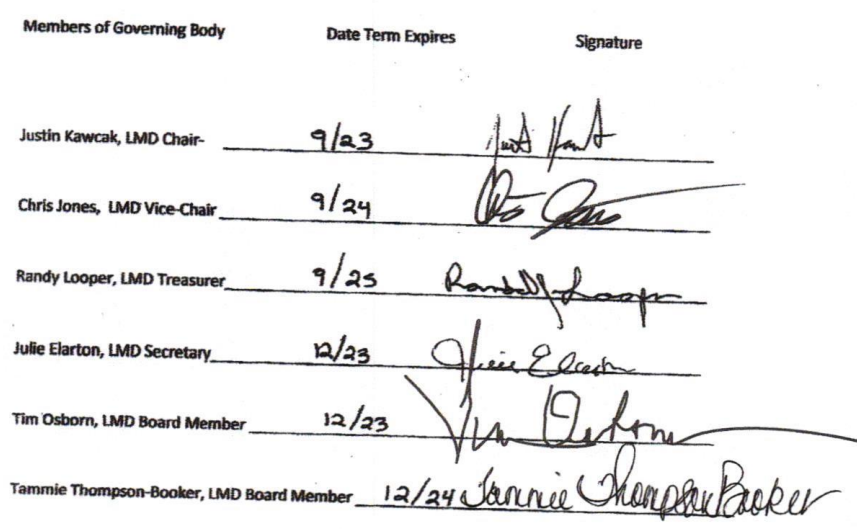 Members of Governing Body Date Term Expires Signature
Justin Kawcak, LMD Chair- 9/23
Chris Jones, LMD Vice-Chair 9/24
Randy Looper, LMD Treasurer 9/25 Randall Looper
Julie Elarton, LMD Secretary 12/23 Julie Elarton
Tim Osborn, LMD Board Member 12/23 Tim Osborn
Tammie Thompson-Booker, LMD Board Member 12/24 Tammie Thompson Booker